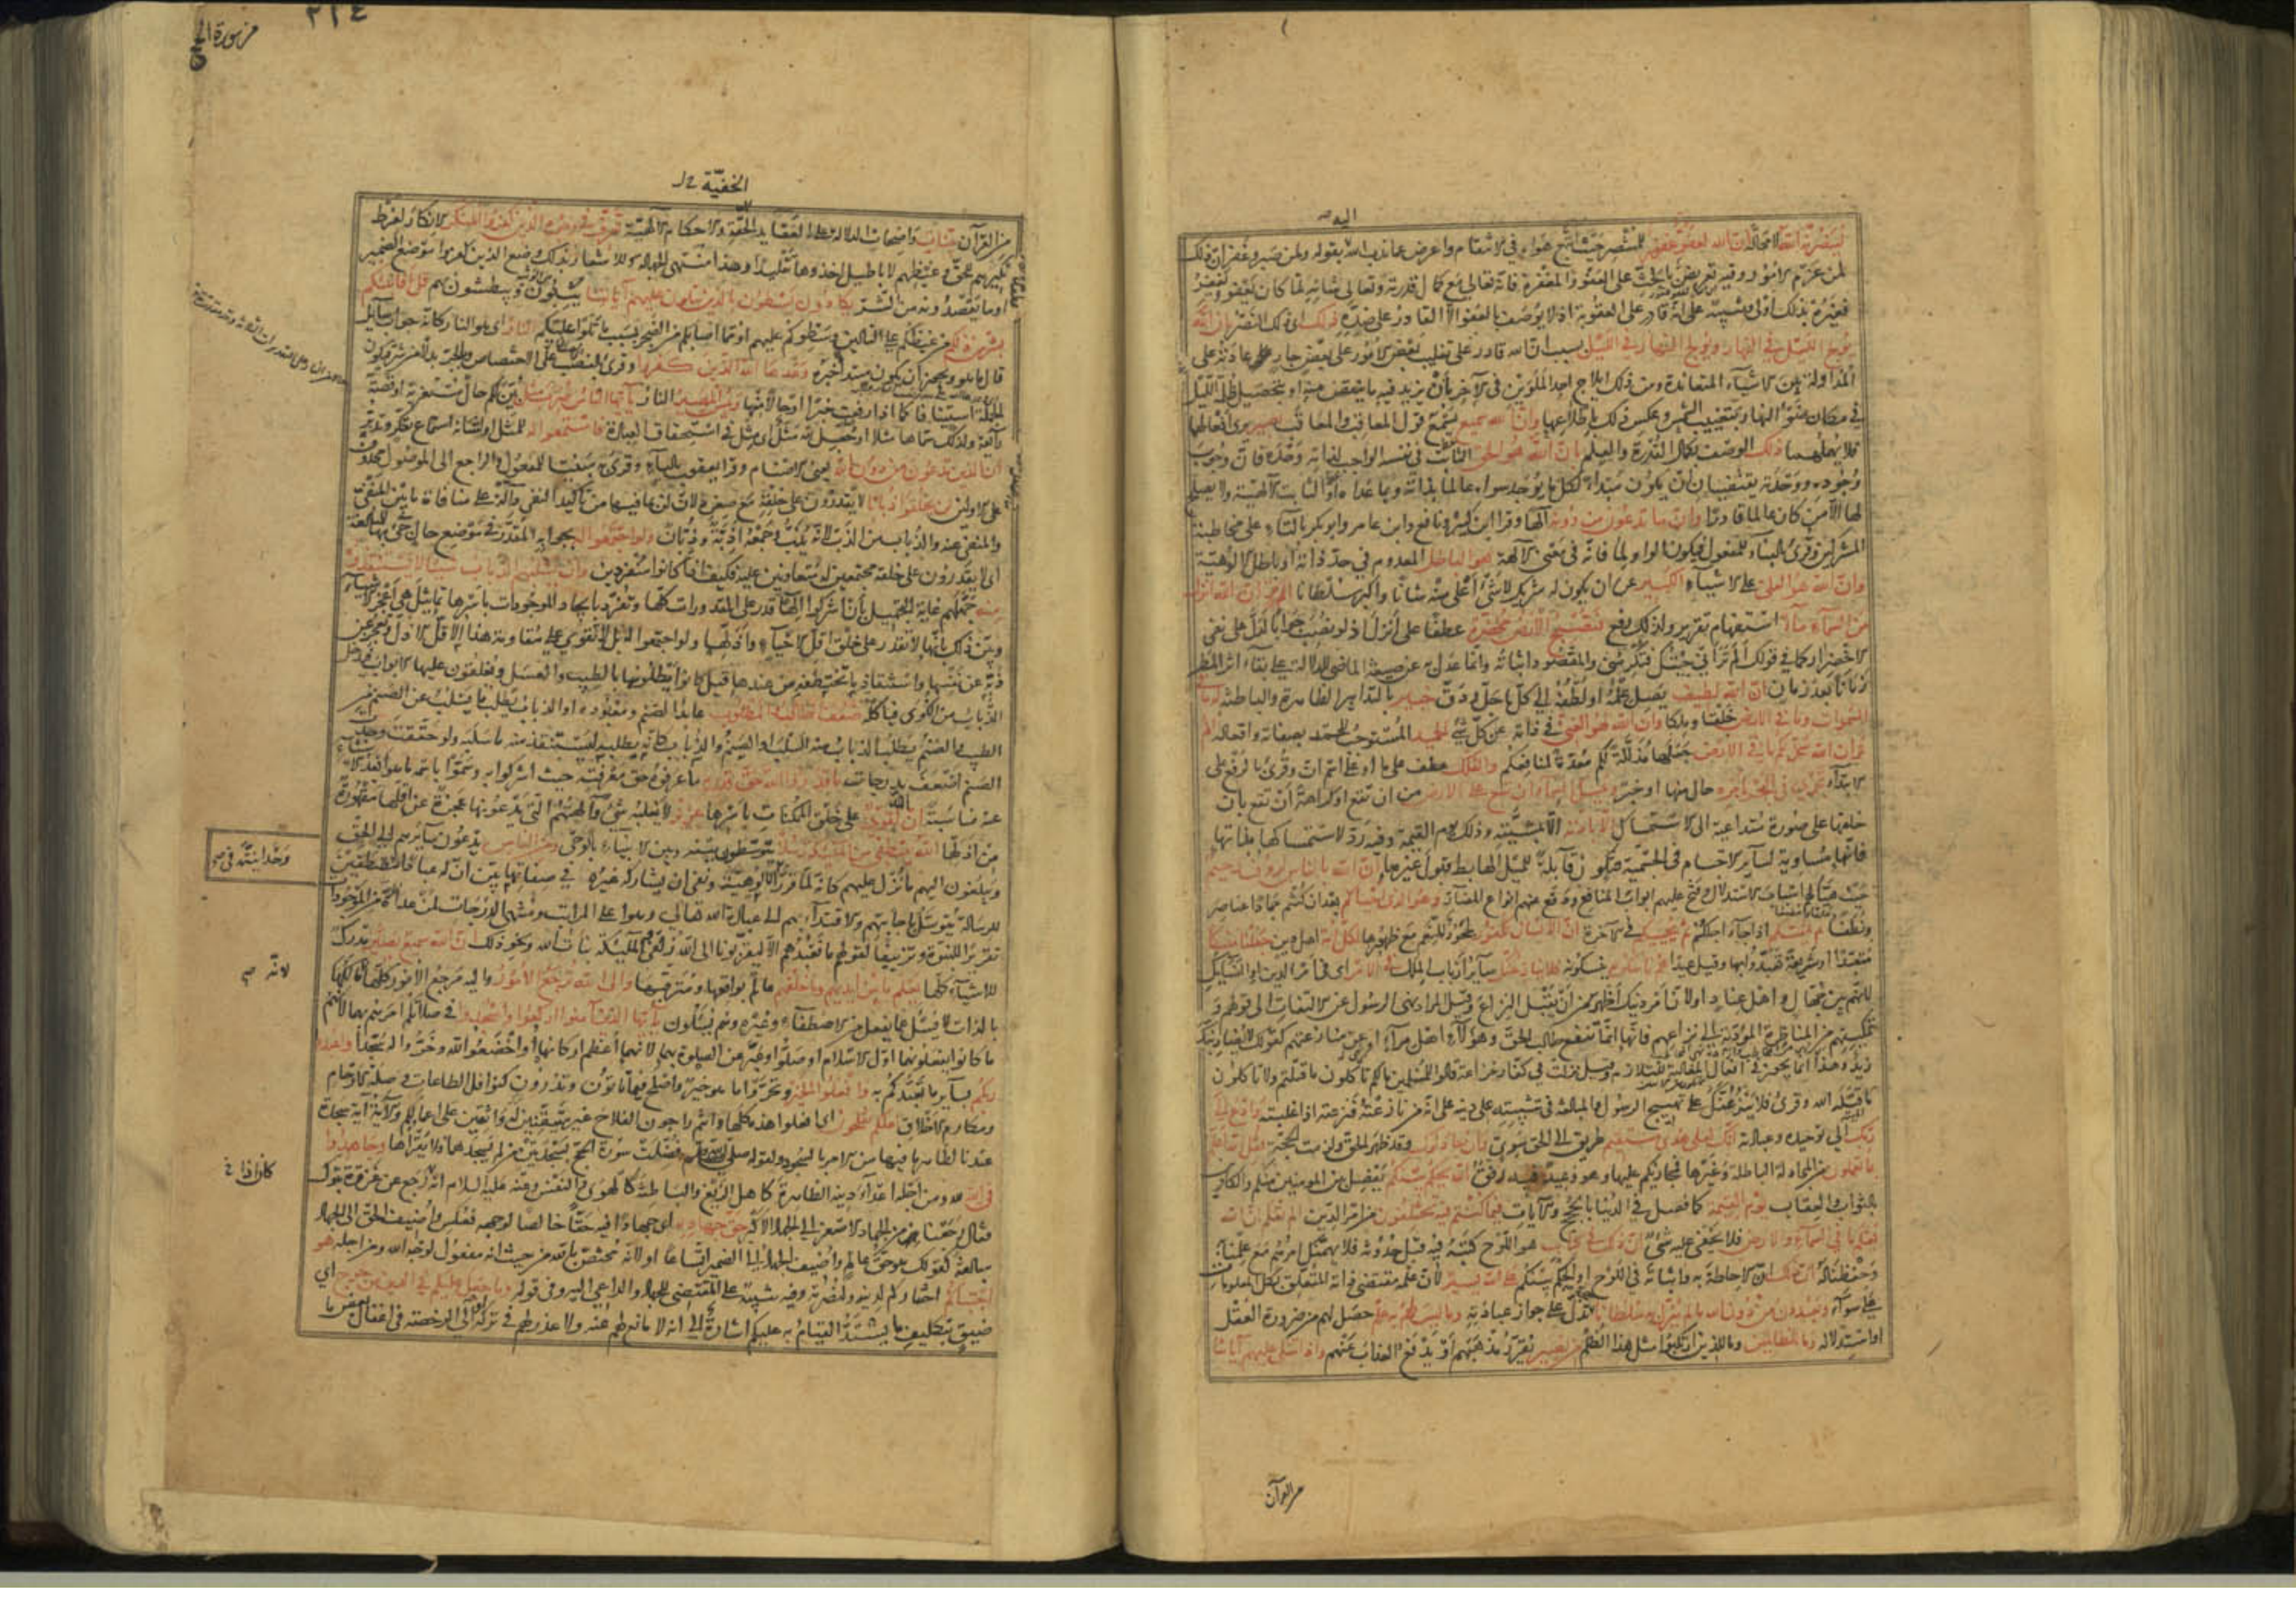 اليه صح
لينصرنه الله لا محالة ان الله لعفو غفور للمنتصر حيث اتبع هواه في الانتقام واعرض عما ندب الله بقوله ولمن صبر وغفر ان ذلك
لمن عزم الامور وفيه تعريض بالحث على العفو والمغفرة فانه تعالى مع كمال قدرته وتعالى شانه لما كان يعفو ويغفر
فغيره بذلك اولى وتنبيه على انه قادر على العقوبة اذ لا يوصف بالعفو الا القادر على ضده ذلك اي ذلك النصر بان الله
يولج الليل في النهار ويولج النهار في الليل بسبب ان الله قادر على تغليب بعض الامور على بعض جار عادته على
المداولة بين الاشياء المتعاندة ومن ذلك ايلاج احد الملوين في الاخر بان يزيد فيه ما ينقص منه او بتحصيل ظلمة الليل
في مكان ضوء النهار بتغييب الشمس وعكس ذلك باطلاعها وان الله سميع يسمع قول المعاقب والمعاقب بصير يرى افعالهما
فلا يهملهما ذلك الوصف بكمال القدرة والعلم بان الله هو الحق الثابت في نفسه الواجب لذاته وحده فان وجوب
وجوده ووحدته يقتضيان ان يكون مبدأ لكل ما يوجد سواه عالما بذاته وبما عداه او الثابت الالهية ولا يصلح
لها الا من كان عالما قادرا وان ما تدعون من دونه الها وقرا ابن كثير ونافع وابن عامر وابو بكر بالتاء على مخاطبة
المشركين وقرئ بالبناء للمفعول فيكون الواو لما فانه في معنى الالهة هو الباطل المعدوم في حد ذاته او باطل الالوهية
وان الله هو العلي على الاشياء الكبير عن ان يكون له شريك لا شيء اعلى منه شانا واكبر سلطانا الم تر ان الله انزل
من السماء ماء استفهام تقرير ولذلك رفع فتصبح الارض مخضرة عطفا على انزل اذ لو نصب جوابا لدل على نفي
الاخضرار كما في قولك الم تر اني جئتك فتكرمني والمقصود اثباته وانما عدل به عن صيغة الماضي للدلالة على بقاء اثر المطر
زمانا بعد زمان ان الله لطيف يصل علمه او لطفه الى كل ما جل ودق خبير بالتدابير الظاهرة والباطنة له ما في
السموات وما في الارض خلقا وملكا وان الله لهو الغني في ذاته عن كل شيء الحميد المستوجب للحمد بصفاته وافعاله الم
تر ان الله سخر لكم ما في الارض جعلها مذللة لكم معدة لمنافعكم والفلك عطف على ما او على اسم ان وقرئ بالرفع على
الابتداء تجري في البحر بامره حال منها او خبر ويمسك السماء ان تقع على الارض من ان تقع او كراهة ان تقع بان
خلقها على صورة متداعية الى الاستمساك الا باذنه الا بمشيته وذلك يوم القيمة وفيه رد لاستمساكها بذاتها
فانها مساوية لساير الاجسام في الجسمية فتكون قابلة للميل الهابط قبول غيرها ان الله بالناس لرؤف رحيم
حيث هيا لهم اسباب الاستدلال وفتح عليهم ابواب المنافع ودفع عنهم انواع المضار وهو الذي احياكم بعد ان كنتم جمادا عناصر
ونطفا ثم يميتكم اذا جاء اجلكم ثم يحييكم في الاخرة ان الانسان لكفور لجحود للنعم مع ظهورها لكل امة اهل دين جعلنا منسكا
متعبدا او شريعة تعبدوا بها وقيل عيدا هم ناسكوه ينسكونه فلا ينازعنك ساير ارباب الملل في الامر اي في امر الدين او النسايك
لانهم بين جهال واهل عناد اولان امر دينك اظهر من ان يقبل النزاع وقيل المراد نهي الرسول عن الالتفات الى قولهم و
تمكينهم من المناظرة المؤدية الى نزاعهم فانها انما تنفع طالب الحق وهؤلاء اهل مراء او عن منازعتهم كقولك لا يضاربنك
زيد وهذا انما يجوز في افعال المغالبة للتلازم وقيل نزلت في كفار خزاعة قالوا للمسلمين ما لكم تاكلون ما قتلتم ولا تاكلون
ما قتله الله وقرئ فلا ينزعنك على تهييج الرسول والمبالغة في تثبيته على دينه على انه من نازعته فنزعته اذا غلبته وادع الى
ربك الى توحيده وعبادته انك لعلى هدى مستقيم طريق الى الحق سوي وان جادلوك وقد ظهر الحق ولزمت الحجة فقل الله اعلم
بما تعملون من المجادلة الباطلة وغيرها فمجازيكم عليها وهو وعيد فيه رفق الله يحكم بينكم يفصل بين المؤمنين منكم والكافرين
بالثواب والعقاب يوم القيمة كما فصل في الدنيا بالحجج والايات فيما كنتم فيه تختلفون من امر الدين الم تعلم ان الله
يعلم ما في السماء والارض فلا يخفى عليه شيء ان ذلك في كتاب هو اللوح كتبه فيه قبل حدوثه فلا يهمنك امرهم مع علمنا به
وحفظنا له ان ذلك ان الاحاطة به واثباته في اللوح او الحكم بينكم على الله يسير لان علمه مقتضى ذاته المتعلق بكل المعلومات
على سواء ويعبدون من دون الله ما لم ينزل به سلطانا حجة تدل على جواز عبادته وما ليس لهم به علم حصل لهم من ضرورة العقل
او استدلاله وما للظالمين وما للذين ارتكبوا مثل هذا الظلم من نصير يقرر مذهبهم او يدفع العذاب عنهم واذا تتلى عليهم آياتنا
من القرآن
٢٢٤
من سورة الحج
الخفية
من القرآن بينات واضحات الدلالة على العقايد الحقة والاحكام الالهية تعرف في وجوه الذين كفروا المنكر الانكار لفرط
نكيرهم للحق وغيظهم لاباطيل اخذوها تقليدا وهذا منتهى الجهالة وللاشعار بذلك وضع الذين كفروا موضع الضمير
او ما يقصدونه من الشر يكادون يسطون بالذين يتلون عليهم آياتنا يثبون ويبطشون بهم قل افانبئكم
بشر من ذلكم من غيظكم على التالين وسطوكم عليهم او مما اصابكم من الضجر بسبب ما تلوا عليكم النار اي هو النار كانه جواب سايل
قال ما هو ويجوز ان يكون مبتدأ خبره وعدها الله الذين كفروا وقرئ بالنصب على الاختصاص وبالجر بدلا من شر فيكون
الجملة استينافا كما اذا رفعت خبرا او حالا منها وبئس المصير النار يا ايها الناس ضرب مثل بين لكم حال مستغربة او قصة
رايعة ولذلك سماها مثلا او جعل لله مثل اي مثل في استحقاق العبادة فاستمعوا له للمثل او لشانه استماع تفكر وتدبر
ان الذين تدعون من دون الله يعني الاصنام وقرا يعقوب بالياء وقرئ مبنيا للمفعول والراجع الى الموصول محذوف
على الاولين لن يخلقوا ذبابا لا يقدرون على خلقه مع صغره لان لن بما فيها من تاكيد النفي دالة على منافاة ما بين المنفي
والمنفي عنه والذباب من الذب لانه يذب وجمعه اذبة وذبان ولو اجتمعوا له بجوابه المقدر في موضع حال جيء بها للمبالغة
اي لا يقدرون على خلقه مجتمعين له متعاونين عليه فكيف اذا كانوا منفردين وان يسلبهم الذباب شيئا لا يستنقذوه
منه جهلهم غاية التجهيل بان اشركوا الها قدر على المقدورات كلها وتفرد بايجاد الموجودات باسرها تماثيل هي اعجز الاشياء
وبين ذلك بانها لا تقدر على خلق اقل الاحياء واذلها ولو اجتمعوا له بل لا تقوى على مقاومة هذا الاقل الاذل وتعجز عن
ذبه عن نفسها واستنقاذ ما يختطفه من عندها قيل كانوا يطلونها بالطيب والعسل ويغلقون عليها الابواب فيدخل
الذباب من الكوى فياكله ضعف الطالب والمطلوب عابد الصنم ومعبوده او الذباب يطلب ما يسلب عن الصنم من
الطيب والصنم يطلب الذباب منه السلب او الصنم والذباب كانه يطلبه ليستنقذ منه ما سلبه ولو حققت وجدت
الصنم اضعف بدرجات ما قدروا الله حق قدره ما عرفوه حق معرفته حيث اشركوا به وسموا باسمه ما هو ابعد الاشياء
عنه مناسبة ان الله لقوي على خلق الممكنات باسرها عزيز لا يغلبه شيء والهتهم التي يدعونها عجزة عن اقلها مقهورة
من اذلها الله يصطفي من الملئكة رسلا يتوسطون بينه وبين الانبياء بالوحي ومن الناس يدعون سايرهم الى الحق
ويبلغون اليهم ما نزل عليهم كانه لما قرر الالوهية ونفى ان يشاركه غيره في صفاتها بين ان له عبادا مصطفين
للرسالة يتوسل باجابتهم والاقتداء بهم الى عبادة الله تعالى وهو اعلى المراتب ومنتهى الدرجات لمن عداه من الموجودات
تقريرا للنبوة وتزييفا لقولهم ما نعبدهم الا ليقربونا الى الله زلفى والملئكة بنات الله ونحو ذلك ان الله سميع بصير مدرك
للاشياء كلها يعلم ما بين ايديهم وما خلفهم عالم بواقعها ومترقبها والى الله ترجع الامور واليه مرجع الامور كلها مالكها
بالذات لا يسئل عما يفعل من الاصطفاء وغيره وهم يسئلون يا ايها الذين آمنوا اركعوا واسجدوا في صلاتكم امرهم بهما لانهم
ما كانوا يفعلونهما اول الاسلام او صلوا وعبر عن الصلوة بهما لانهما اعظم اركانها او اخضعوا لله وخروا له سجدا واعبدوا
ربكم بساير ما تعبدكم به وافعلوا الخير وتحروا ما هو خير واصلح فيما تاتون وتذرون كنوافل الطاعات وصلة الارحام
ومكارم الاخلاق لعلكم تفلحون اي افعلوا هذه كلها وانتم راجون الفلاح غير متيقنين له واثقين على اعمالكم والاية آية سجدة
عندنا لظاهر ما فيها من الامر بالسجود ولقوله صلى الله عليه وسلم فضلت سورة الحج بسجدتين من لم يسجدهما فلا يقراها وجاهدوا
في الله لله ومن اجله اعداء دينه الظاهرة كاهل الزيغ والباطنة كالهوى والنفس وعنه عليه السلام انه رجع من غزوة تبوك
فقال رجعنا من الجهاد الاصغر الى الجهاد الاكبر حق جهاده اي جهادا فيه حقا خالصا لوجهه فعكس واضيف الحق الى الجهاد
مبالغة كقولك هو حق عالم واضيف الجهاد الى الضمير اتساعا او لانه مختص بالله من حيث انه مفعول لوجه الله ومن اجله هو
اجتباكم اختاركم لدينه ولنصرته وفيه تنبيه على المقتضي للجهاد والداعي اليه وفي قوله وما جعل عليكم في الدين من حرج اي
ضيق بتكليف ما يشتد القيام به عليكم اشارة الى انه لا مانع لهم عنه ولا عذر لهم في تركه او الى الرخصة في اغفال بعض ما
وحدانيته في صح
لانه صح
كانوا اذا